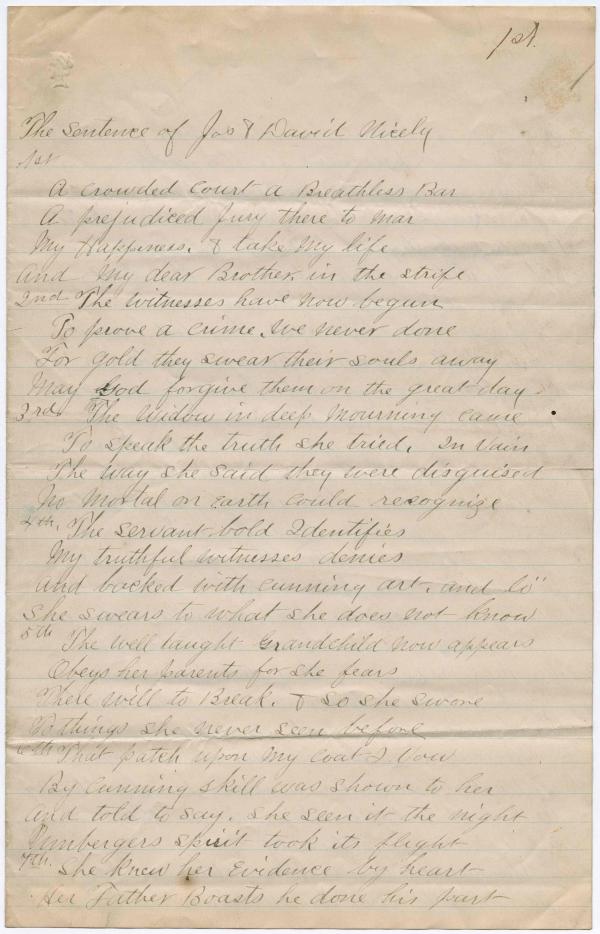 1st.
The Sentence of Jos & David Nicely
1st
A crowded Court a Breathless Bar
A prejudiced Jury there to mar
My Happiness. & take my life
And my dear Brother. in the strife
2nd The witnesses have now begun
To prove a crime. we never done
For gold they swear their souls away
May God forgive them on the great day.
3rd. The Widow in deep mourning came
To speak the truth she tried. In Vain
The way she said they were disguised
No Mortal on Earth could recognize
4th. The servant bold Identifies
My truthful witnesses denies
And backed with cunning art. and lo"
She swears to what she does not know
5th The well taught Grandchild now appears
Obeys her parents for she fears
There will to Break. & so she swore
To things she never seen before
6th That patch upon my coat I vow
By Cunning skill was shown to her
And told to say. she seen it the night
Umbergers spirit took its flight
7th. She knew her Evidence by heart
Her Father Boasts he done his part